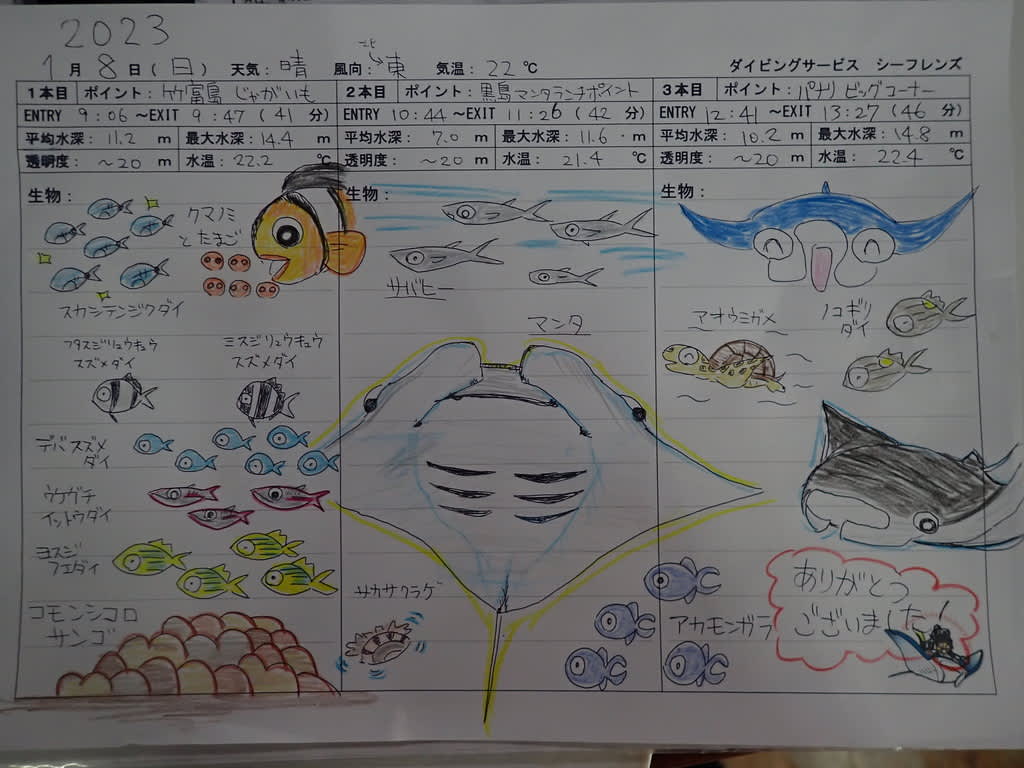 2023
1月 8日(日) 天気：晴 風向：北→東 気温：22℃ ダイビングサービス シーフレンズ
1本目 ポイント：竹富島 じゃがいも
ENTRY 9:06 ～EXIT 9:47 (41 分)
平均水深：11.2 m 最大水深：14.4 m
透明度：～20 m 水温：22.2 ℃
生物：
クマノミ
と たまご
スカシテンジクダイ
フタスジリュウキュウ
スズメダイ
ミスジリュウキュウ
スズメダイ
デバスズメ
ダイ
ウケグチ
イットウダイ
ヨスジ
フエダイ
コモンシコロ
サンゴ
2本目 ポイント：黒島マンタランチポイント
ENTRY 10:44 ～EXIT 11:26 (42 分)
平均水深：7.0 m 最大水深：11.6 m
透明度：～20 m 水温：21.4 ℃
生物：
サバヒー
マンタ
サカサクラゲ
3本目 ポイント：パナリ ビッグコーナー
ENTRY 12:41 ～EXIT 13:27 (46 分)
平均水深：10.2 m 最大水深：14.8 m
透明度：～20 m 水温：22.4 ℃
生物：
アオウミガメ
ノコギリ
ダイ
アカモンガラ
ありがとう
ございました！